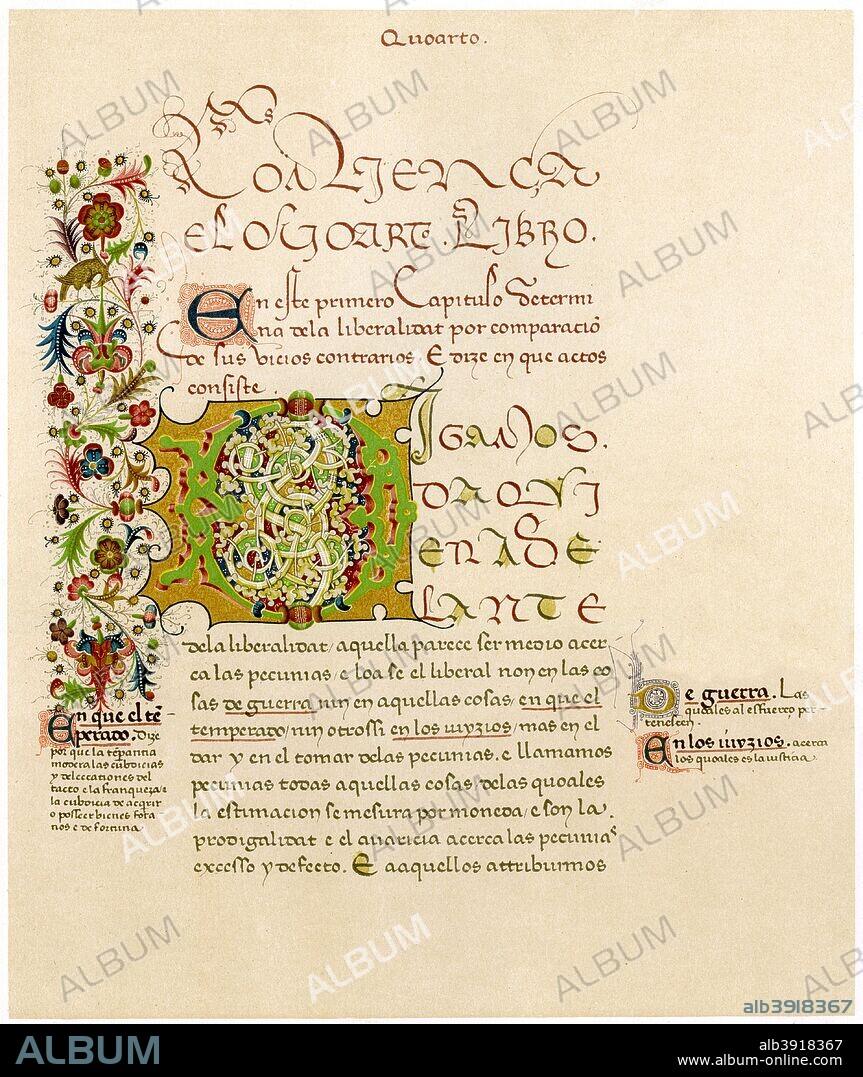 Quoarto.
Comiença
el quoarto libro.
En este primero Capitulo determi
na dela liberalidat por comparació
de sus vicios contrarios E dize en que actos
consiste.
Digamos.
daqui
enade
lante
dela liberalidat / aquella parece ser medio acer
ca las pecunias / e loa se el liberal non en las co
sas de guerra nin en aquellas cosas / en que el
temperado / nin otrossi en los iuyzios / mas en el
dar y en el tomar delas pecunias. e llamamos
pecunias todas aquellas cosas / delas quoales
la estimacion se mesura por moneda / e son la.
prodigalidat e el auaricia acerca las pecunias
excesso y defecto. E aaquellos attribuimos
En que el tē-
perado. Dize
por que la tēpranna
modera las cubdicias
y delectationes del
tacto e la franqueza /
la cubdicia de acqrir
o posseer bienes fora
nos e de fortuna.
De guerra. Las
quoales al esfuerço per-
tenescen.
En los iuyzios. acerca
los quoales es la iusticia.
alb3918367
ALBUM
alb3918367
www.album-online.com